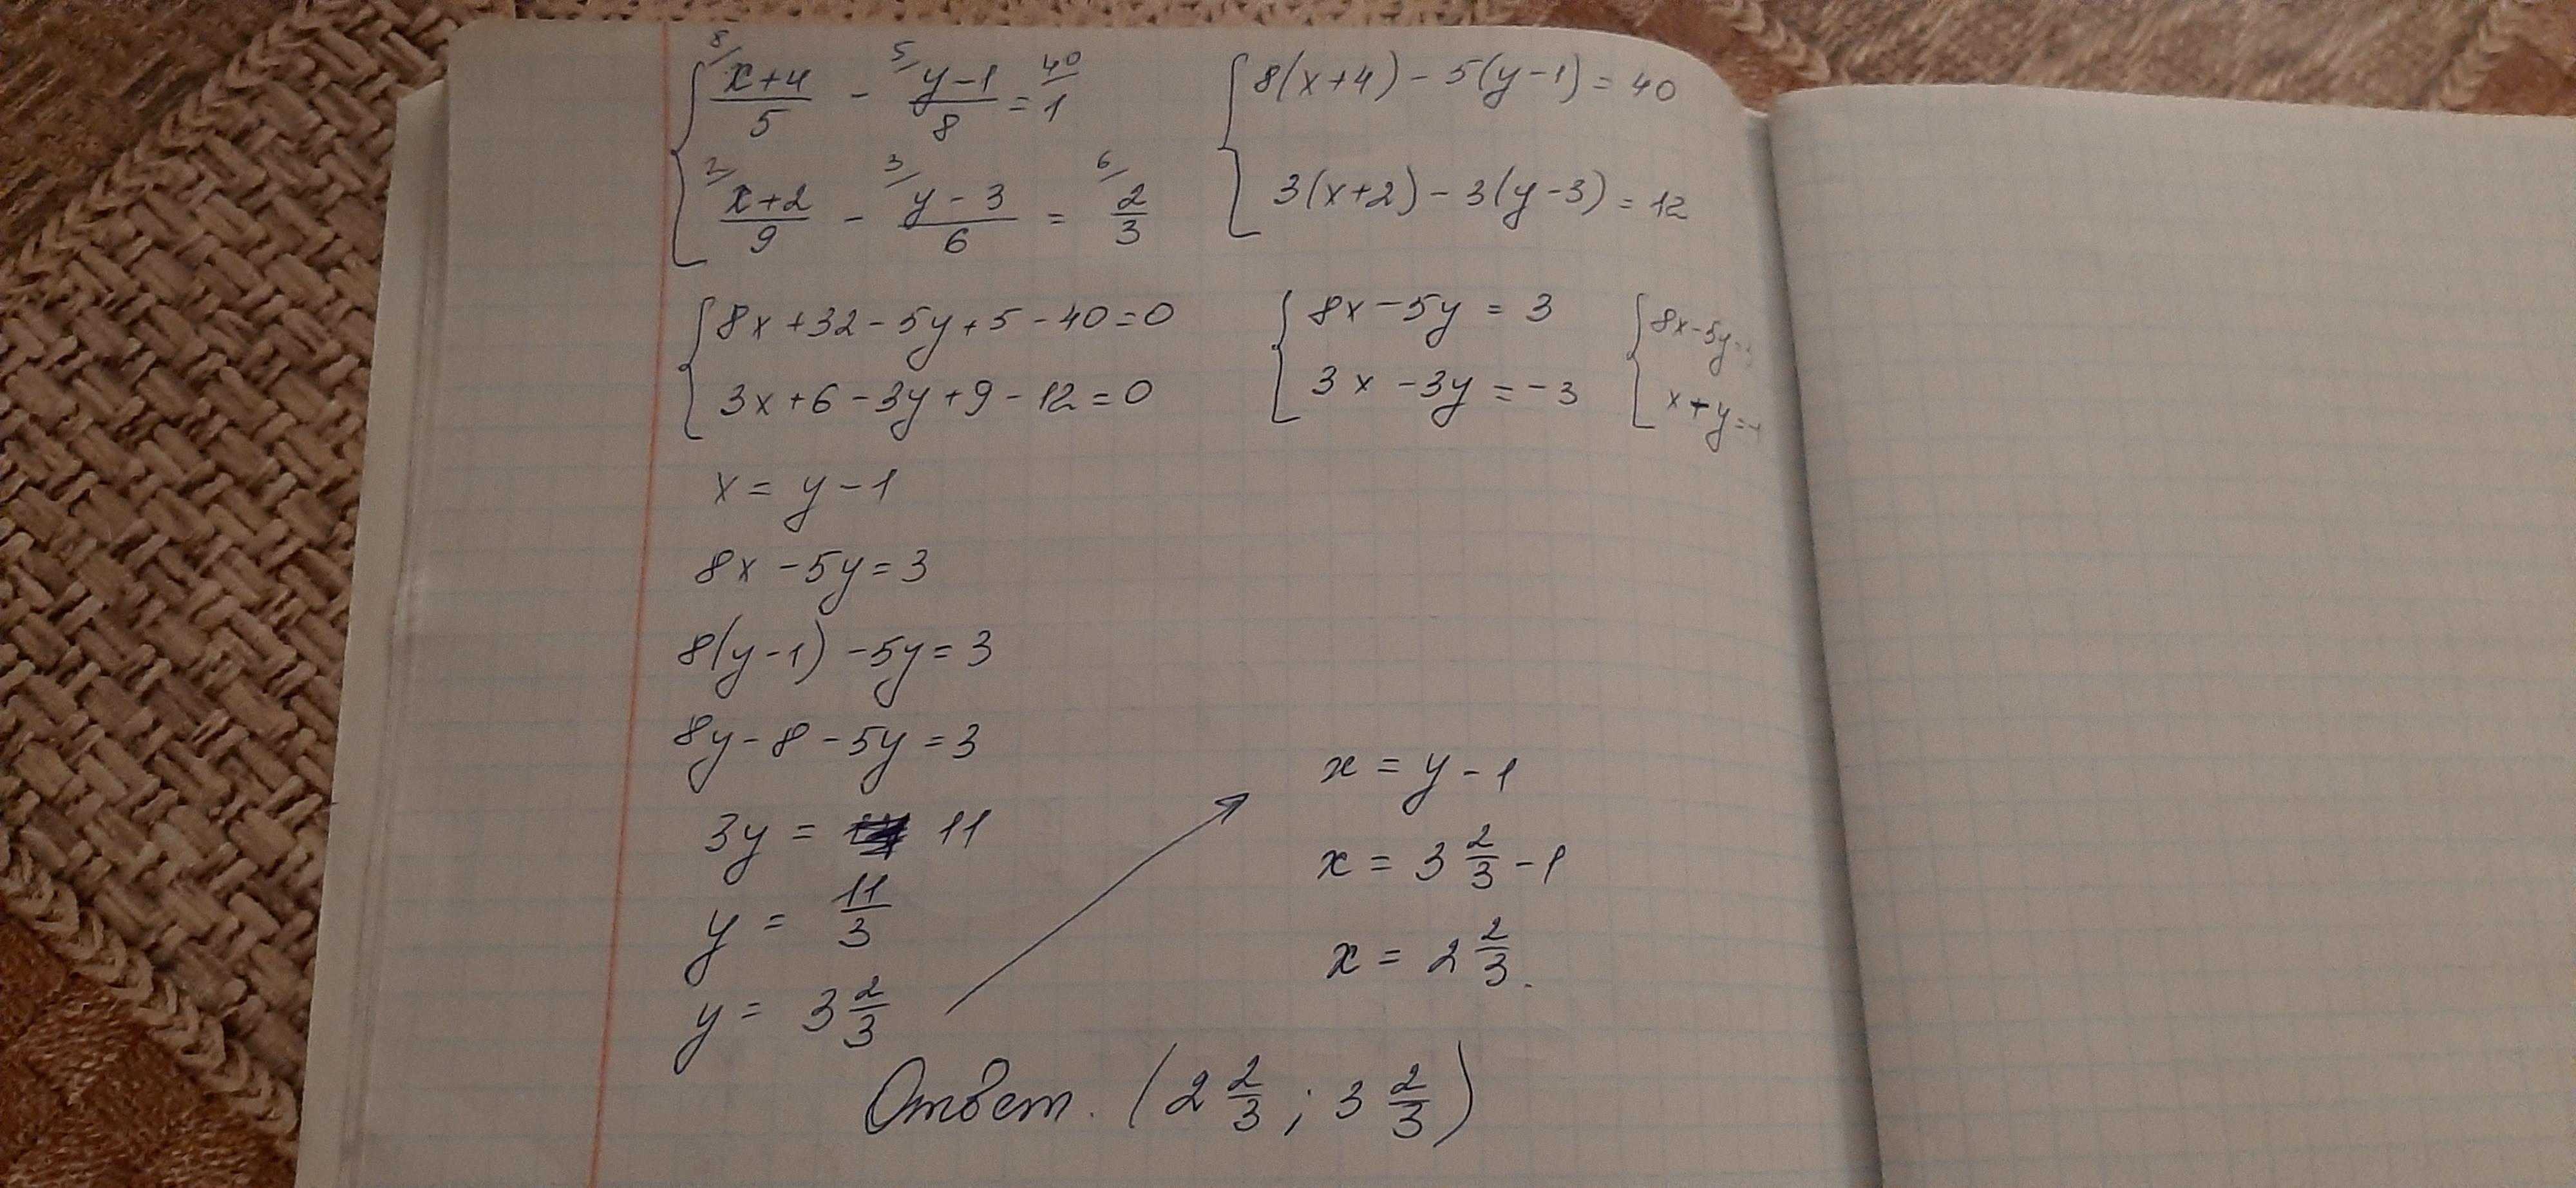 { 8/ (x+4)/5 - 5/ (y-1)/8 = 40/ 1
{ 2/ (x+2)/9 - 3/ (y-3)/6 = 6/ 2/3
{ 8(x+4) - 5(y-1) = 40
{ 3(x+2) - 3(y-3) = 12
{ 8x+32-5y+5-40=0
{ 3x+6-3y+9-12=0
{ 8x-5y = 3
{ 3x-3y = -3
{ 8x-5y=
{ x-y=-1
x = y-1
8x-5y=3
8(y-1)-5y=3
8y-8-5y=3
3y = 11
y = 11/3
y = 3 2/3
x = y-1
x = 3 2/3 - 1
x = 2 2/3.
Ответ. (2 2/3 ; 3 2/3)